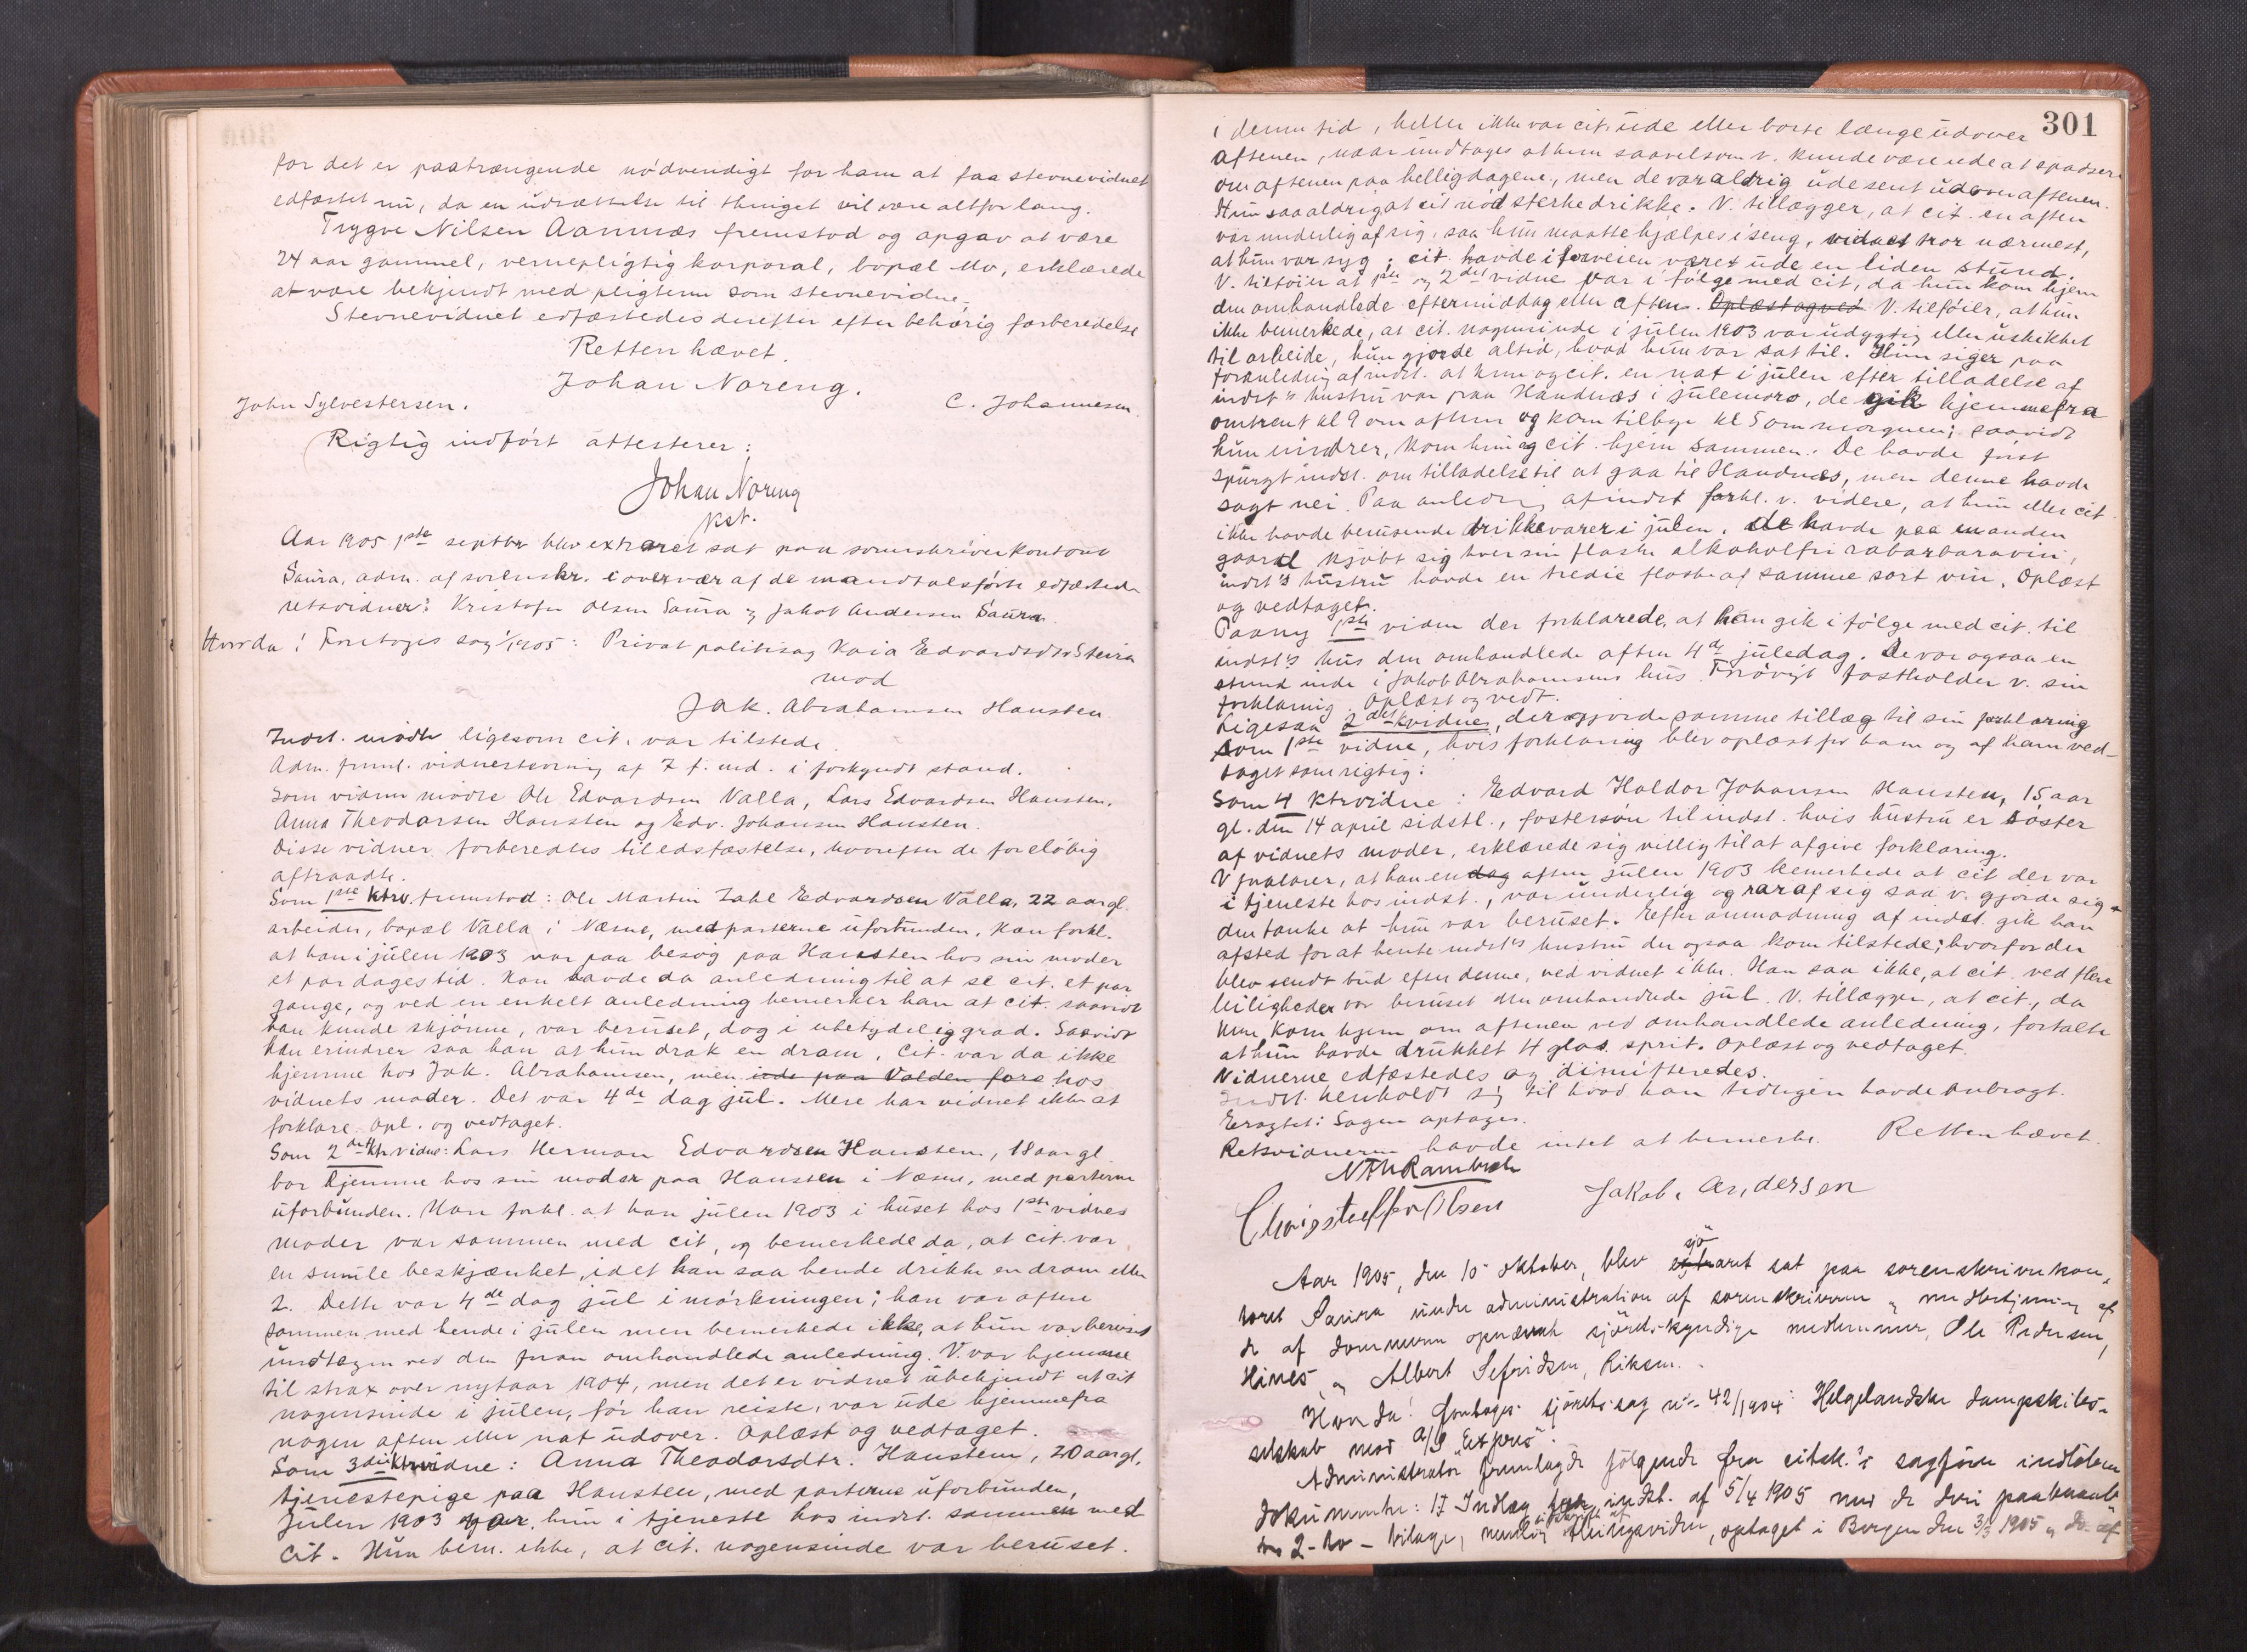 for det er paatrængende nödvendigt for ham at faa stevnevidnet
edfæstet nu, da en udsættelse til thinget vil være altfor lang.
Trygve Nilsen Aanmæs fremstod og opgav at være
24 aar gammel, vernepligtig korporal, bopæl Mo, erklærede
at være bekjendt med pligterne som stevnevidne.
Stevnevidnet edfæstedes derefter efter behørig forberedelse
Retten hævet.
Johan Noreng.
John Sylvestersen. C. Johannesen
Rigtig indført attesterer:
Johan Noreng
kst.
Aar 1905 1ste septbr blev extraret sat paa sorenskriverkontoret
Saura, adm. af sorenskr. i overvær af de mandtalsførte edfæstede
retsvidner: Kristofer Olsen Saura og Jakob Andersen Saura.
Hvorda! Foretoges sag /1905: Privat politisag Kaia Edvardsdtr Steira
mod
Jak. Abrahamsen Hausten
Indst. mødte ligesom cit. var tilstede.
Adm. freml. vidnestevning af 7 f. md. i forkyndt stand.
Som vidner mødte Ole Edvardsen Valla, Lars Edvardsen Hausten,
Anna Theodorsen Hausten og Edv. Johansen Hausten.
Disse vidner forberedtes til edsfæstelse, hvorefter de foreløbig
aftraadte.
Som 1ste ktrv. fremstod: Ole Martin Zahl Edvardsen Valla, 22 aar gl.
arbeider, bopæl Valla i Næsne, med parterne uforbunden. Han forkl.
at han i julen 1903 var paa besøg paa Hausten hos sin moder
et par dages tid. Han havde da anledning til at se cit. et par
gange, og ved en enkelt anledning bemerker han at cit. saavidt
han kunde skjønne, var beruset, dog i ubetydelig grad. Saavidt
han erindrer saa han at hun drak en dram. Cit. var da ikke
hjemme hos Jak. Abrahamsen, men inde paa Valden fore hos
vidnets moder. Det var 4de dag jul. Mere har vidnet ikke at
forklare. Opl. og vedtaget.
Som 2det ktr vidne: Lars Herman Edvardsen Hausten, 18 aar gl.
bor hjemme hos sin moder paa Hausten i Næsne, med parterne
uforbunden. Han forkl. at han julen 1903 i huset hos 1ste vidnes
moder var sammen med cit, og bemerkede da, at cit. var
en smule beskjænket, idet han saa hende drikke en dram eller
2. Dette var 4de dag jul i mørkningen; han var oftere
sammen med hende i julen men bemerkede ikke, at hun var beruset
undtagen ved den foran omhandlede anledning. V. var hjemme
til strax over nytaar 1904, men det er vidnet ubekjendt at cit
nogensinde i julen, før han reiste, var ude hjemmefra
nogen aften eller nat udover. Oplæst og vedtaget.
Som 3die ktrvidne: Anna Theodorsdtr. Hausten, 20 aar gl,
tjenestepige paa Hausten, med parterne uforbunden,
Julen 1903 var hun i tjeneste hos indst. sammen med
cit. Hun bem. ikke, at cit. nogensinde var beruset.
301
i denne tid, heller ikke var cit. ude eller borte længe udover
aftenen, naar undtages at hun saavelsom v. kunde være ude at spadsere
om aftenen paa helligdagene, men de var aldrig ude sent udover aftenen.
Hun saa aldrig at cit nød sterke drikke. V. tillægger, at cit. en aften
var underlig af sig, saa hun maatte hjælpes i seng, vidnet tror nærmest,
at hun var syg; cit. havde i forveien været ude en liden stund.
V. tilføier at 1ste og 2det vidne var i følge med cit, da hun kom hjem
den omhandlede eftermiddag eller aften. Oplæst og ved V. tilføier, at hun
ikke bemerkede, at cit. nogensinde i julen 1903 var udygtig eller uskikket
til arbeide, hun gjorde altid, hvad hun var sat til. Hun siger paa
foranledning af indst. at hun og cit. en nat i julen efter tilladelse af
indst's hustru var paa Handnæs i julemoro, de gik hjemmefra
omtrent kl 9 om aftenen og kom tilbage kl 5 om morgenen; saavidt
hun erindrer, kom hun og cit. hjem sammen. De havde først
spurgt indst. om tilladelse til at gaa til Handnæs, men denne havde
sagt nei. Paa anledn. af indst forkl. v. videre, at hun eller cit.
ikke havde berusende drikkevarer i julen. De havde paa en anden
gaard kjøbt sig hver sin flaske alkoholfri rabarbaravin,
indst's hustru havde en tredie flaske af samme sort vin. Oplæst
og vedtaget.
Paany 1ste vidne der forklarede, at han gik i følge med cit. til
indst's hus den omhandlede aften 4de juledag. De var ogsaa en
stund inde i Jakob Abrahamsens hus. Forøvrigt fastholder v. sin
forklaring. Oplæst og vedt.
Ligesaa 2det ktrvidne, der gjorde samme tillæg til sin forklaring
som 1ste vidne, hvis forklaring blev oplæst for ham og af ham ved-
taget som rigtig.
Som 4 ktrvidne: Edvard Haldor Johansen Hausten, 15 aar
gl. den 14 april sidstl., fostersøn til indst. hvis hustru er søster
af vidnets moder, erklærede sig villig til at afgive forklaring.
V. forklarer, at han en dag aften julen 1903 bemerkede at cit der var
i tjeneste hos indst., var underlig og rar af sig saa v. gjorde sig
den tanke at hun var beruset. Efter anmodning af indst. gik han
afsted for at hente indst's hustru der ogsaa kom tilstede; hvorfor der
blev sendt bud efter denne, ved vidnet ikke. Han saa ikke, at cit. ved flere
leiligheder var beruset den omhandlede jul. V. tillægger, at cit., da
hun kom hjem om aftenen ved omhandlede anledning, fortalte
at hun havde drukket 4 glas sprit. Oplæst og vedtaget.
Vidnerne edfæstedes og dimitteredes.
Indst. henholdt sig til hvad han tidligere havde anbragt.
Eragtet: Sagen optages.
Retsvidnerne havde intet at bemerke. Retten hævet.
Christoffer Olsen Jakob Andersen
Aar 1905, den 10 oktober, blev sjö extraret sat paa sorenskriverkon-
toret Saura under administration af sorenskriveren og medbetjening af
de af dommeren opnævnte sjöretskyndige medlemmer, Ole Pedersen,
Hines og Albert Sefridsen,
Hvor da! foretoges sjöretssag no 42/1904: Helgelandske dampskibs-
selskab mod A/S "Express".
Administrator fremlagde fölgende fra citstk.'s sagfører indløbne
dokumenter: 1) Indlæg fra indst. af 5/4 1905 med de deri paaberaabte
2 bilage, nemlig udskrift af thingsvidne, optaget i Bergen den 3/3 1905 og do af